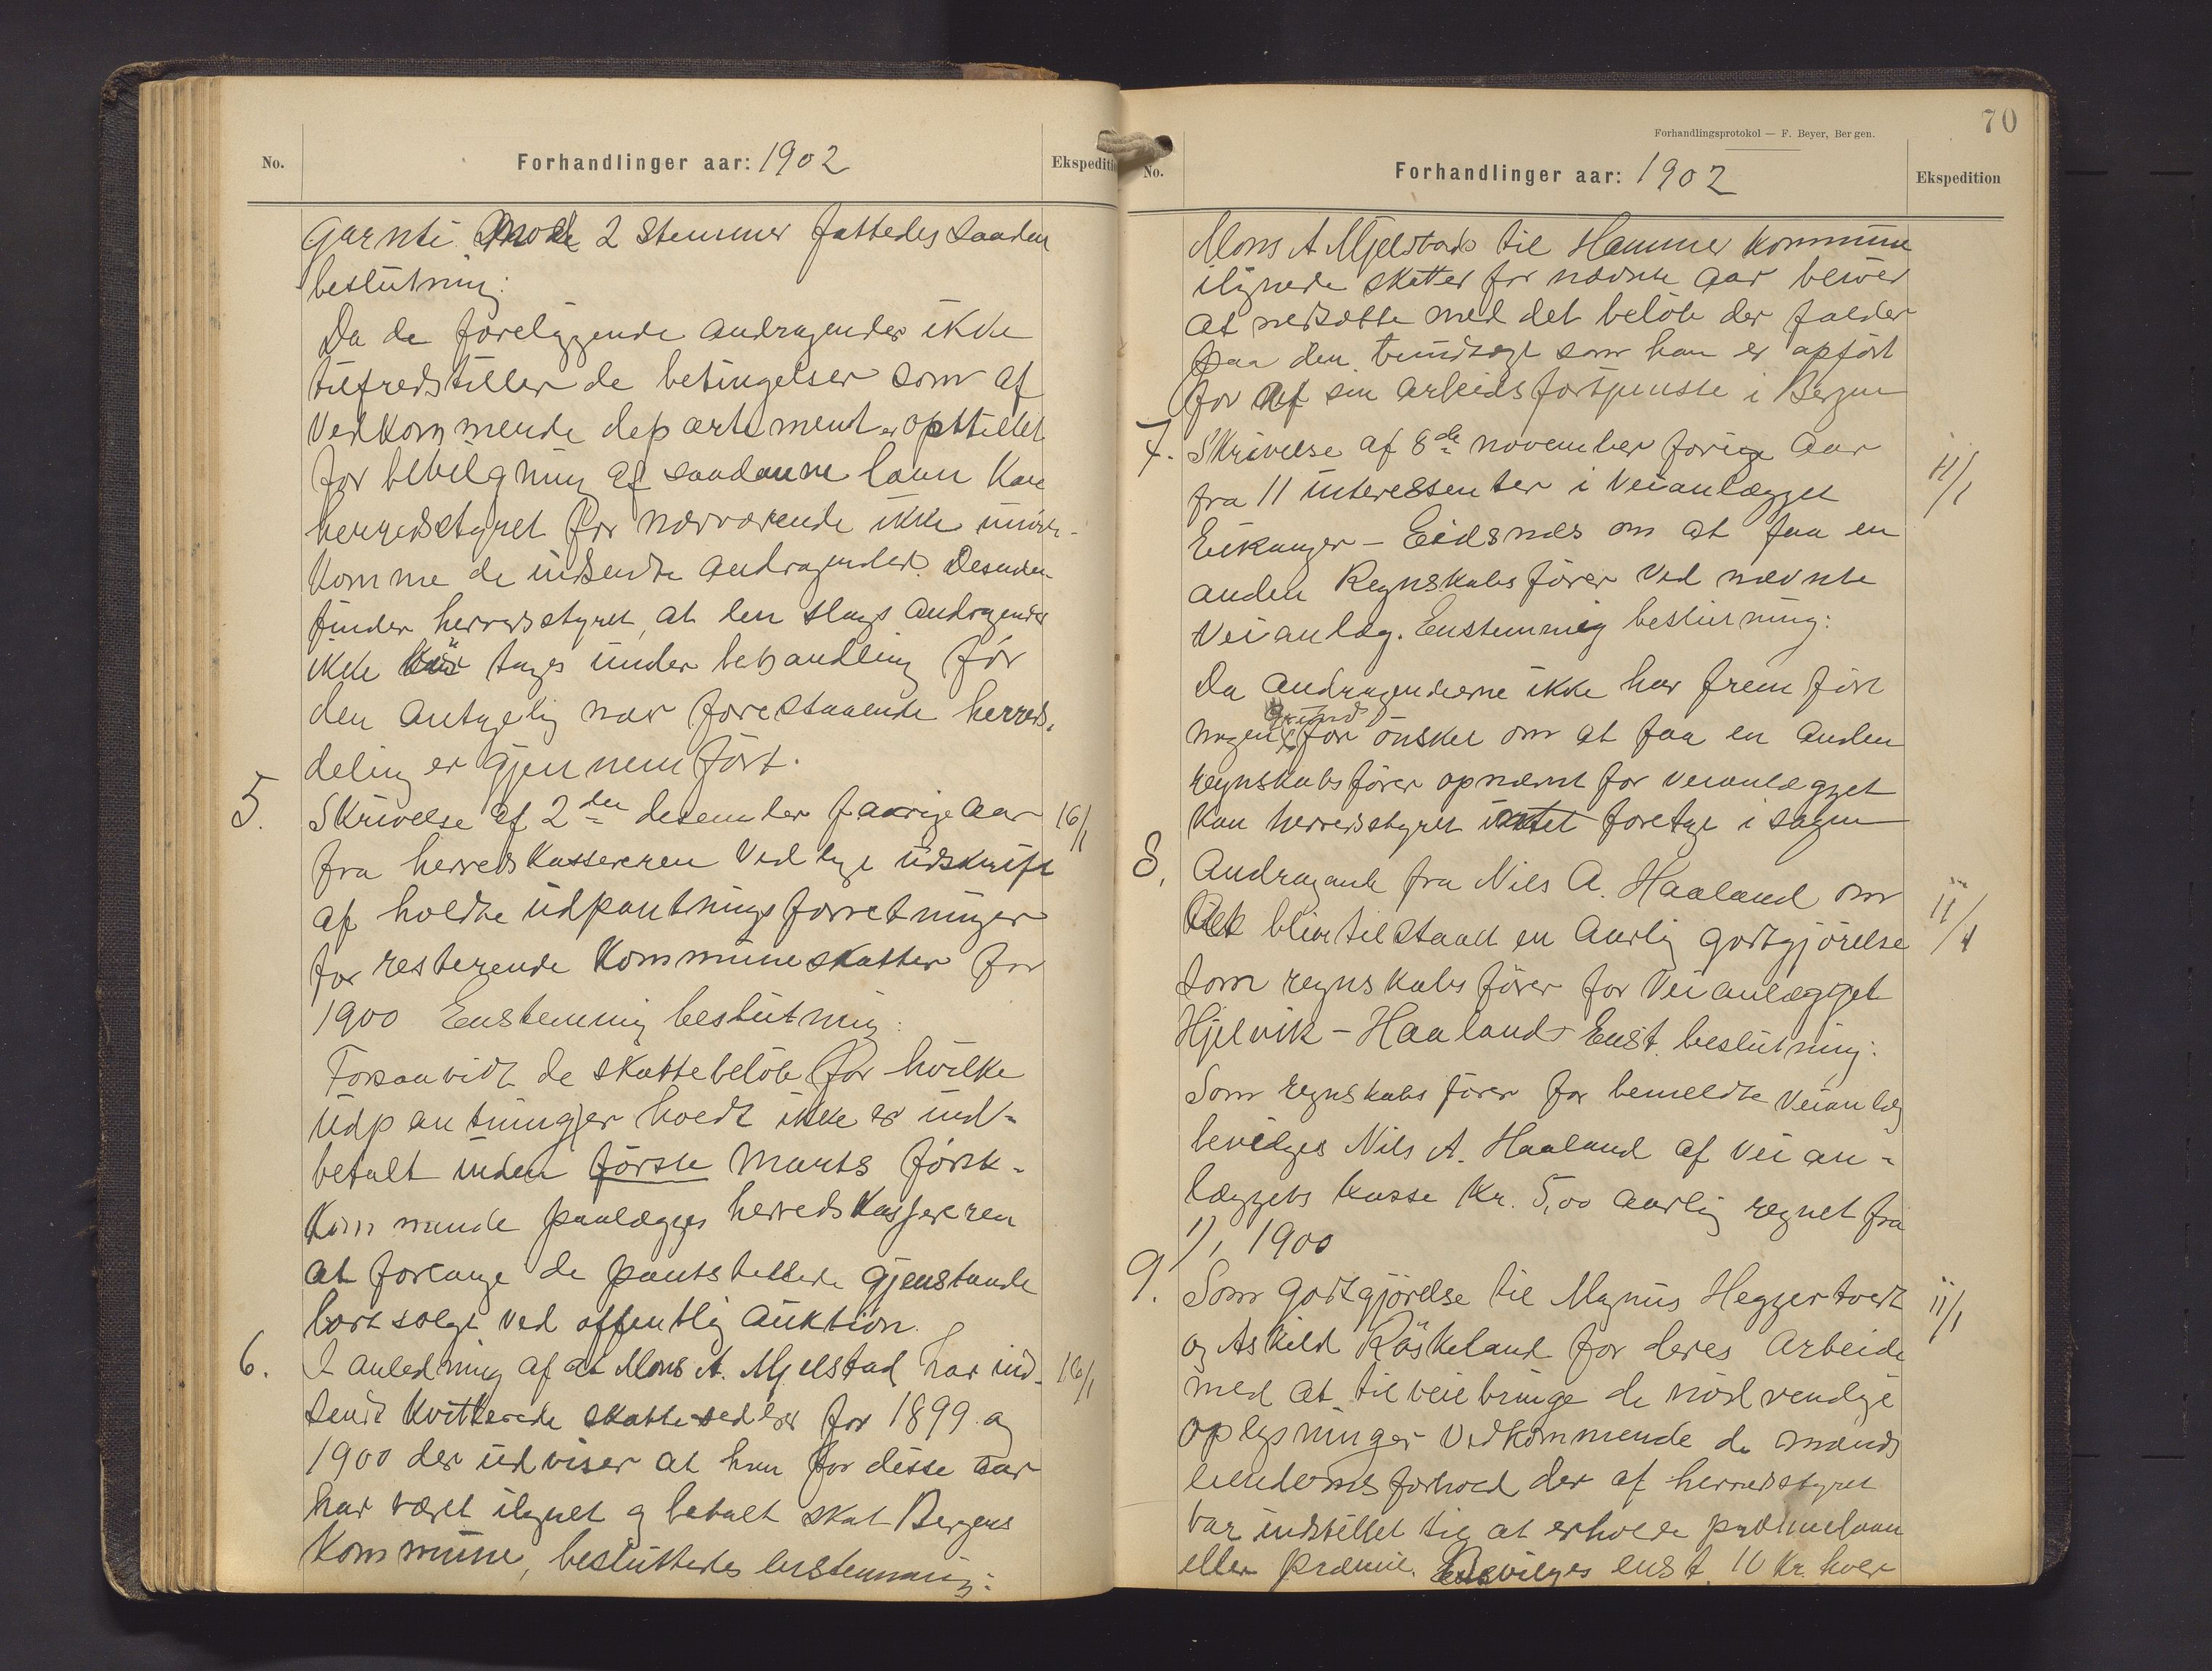 No.
Forhandlinger aar: 1902
Ekspediti
garnti mod 2 stemmer fattedes saaden
beslutning:
Da de foreliggende andragender ikke
tilfredstiller de betingelser som af
vedkommende departement er opstillet
for bevilgning af saadanne laan kan
herredstyret for nærværende ikke imøde-
komme de indsendte andragender. Desuden
finder herredsstyret, at den slags andragender
ikke bør tages under behandling før
den antagelig nær forestaaende herreds-
deling er gjennemført.
5. Skrivelse af 2den desember forrige aar 16/1
fra herredskassereren vedlagt udskrift
af holdte udpantningsforretninger
for resterende kommuneskatter for
1900 Enstemmig beslutning:
Forsaavidt de skattebeløb for hvilke
udpantninger holdt ikke er ind-
betalt inden første marts først-
kommende paalægges herredskassereren
at forlange de pantstillede gjenstande
bortsolgt ved offentlig auktion.
6. I anledning af at Mons A. Mjelstad har ind- 16/1
sendt kvitterede skattesedler for 1899 og
1900 der udviser at han for disse aar
har været ilignet og betalt skat Bergens
kommune, besluttedes enstemmig:
70
Forhandlingsprotokol — F. Beyer, Bergen.
No.
Forhandlinger aar: 1902
Ekspedition
Mons A Mjelstads til Hammer kommune
ilignede skatter for nævnte aar bliver
at nedsætte med det beløb der falder
paa den indtægt som han er opført
for af sin arbeidsfortjenste i Bergen
7. Skrivelse af 8de november forige aar 11/1
fra 11 interessenter i veianlægget
Eikanger - Eidsnes om at faa en
anden Regnskabsfører ved nævnte
veianlæg. Enstemmig beslutning:
Da andragenderne ikke har fremført
nogen grund for ønsket om at faa en anden
regnskabsfører opnævnt for veianlægget
kan herredsstyret intet foretage i sagen
8. Andragende fra Nils A. Haaland om 11/1
at blive tilstaaet en aarlig godtgjørelse
som regnskabsfører for veianlægget
Hjelvik - Haaland Enst. beslutning:
Som regnskabsfører for bemeldte veianlæg
bevilges Nils A. Haaland af veian-
læggets kasse Kr. 5,00 aarlig regnet fra
1/1 1900
9. Som godtgjørelse til Magnus Heggertvedt 11/1
og Askild Röskeland for deres arbeide
med at tilveiebringe de nødvendige
oplysninger vedkommende de mænds
eiendomsforhold der af herredsstyret
var indstillet til at erholde præmielaan
eller præmie. Bevilges enst. 10 kr. hver